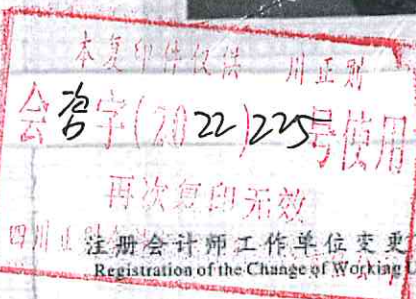 本复印件仅供 川正则
会咨字(2022)225号使用
再次复印无效
四川正则
注册会计师工作单位变更
Registration of the Change of Working